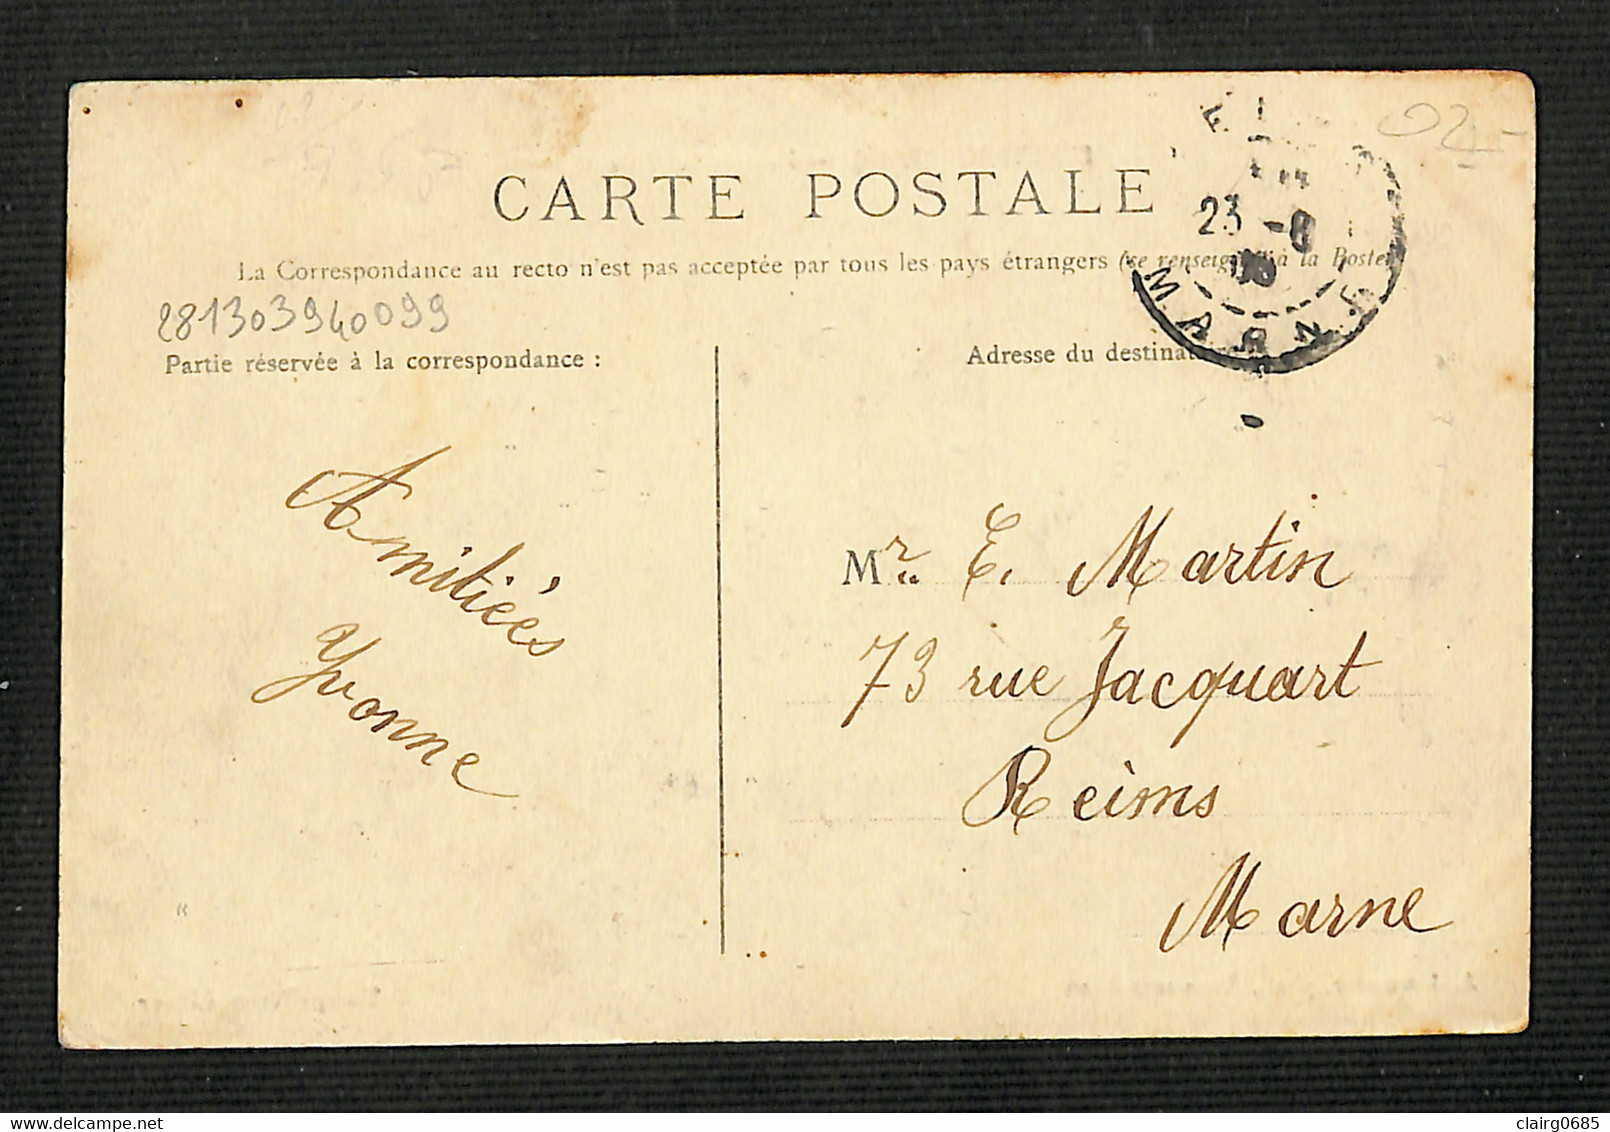 02-
CARTE POSTALE
La Correspondance au recto n'est pas acceptée par tous les pays étrangers (se renseigner à la Poste)
23 -8
06
MARNE
281303940099
Partie réservée à la correspondance :
Adresse du destinat
Amitiées
Yvonne
Mr. E. Martin
73 rue Jacquart
Reims
Marne
delcampe.net
clairg0685